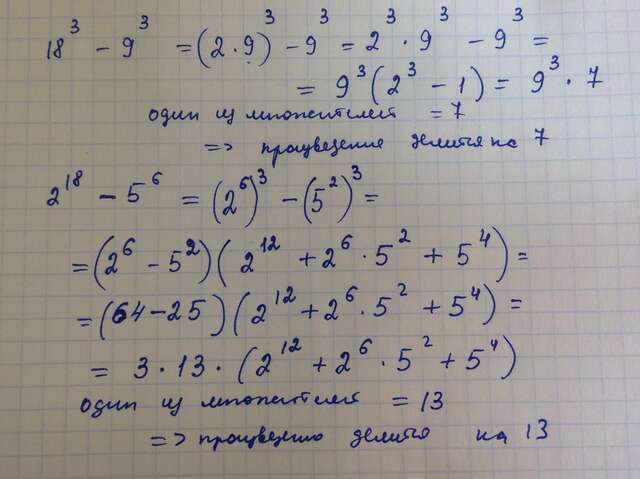 18³ − 9³ = (2·9)³ − 9³ = 2³ · 9³ − 9³ =
= 9³ (2³ − 1) = 9³ · 7
один из множителей = 7
=> произведение делится на 7
2¹⁸ − 5⁶ = (2⁶)³ − (5²)³ =
= (2⁶ − 5²)(2¹² + 2⁶ · 5² + 5⁴) =
= (64 − 25)(2¹² + 2⁶ · 5² + 5⁴) =
= 3 · 13 · (2¹² + 2⁶ · 5² + 5⁴)
один из множителей = 13
=> произведено делится на 13